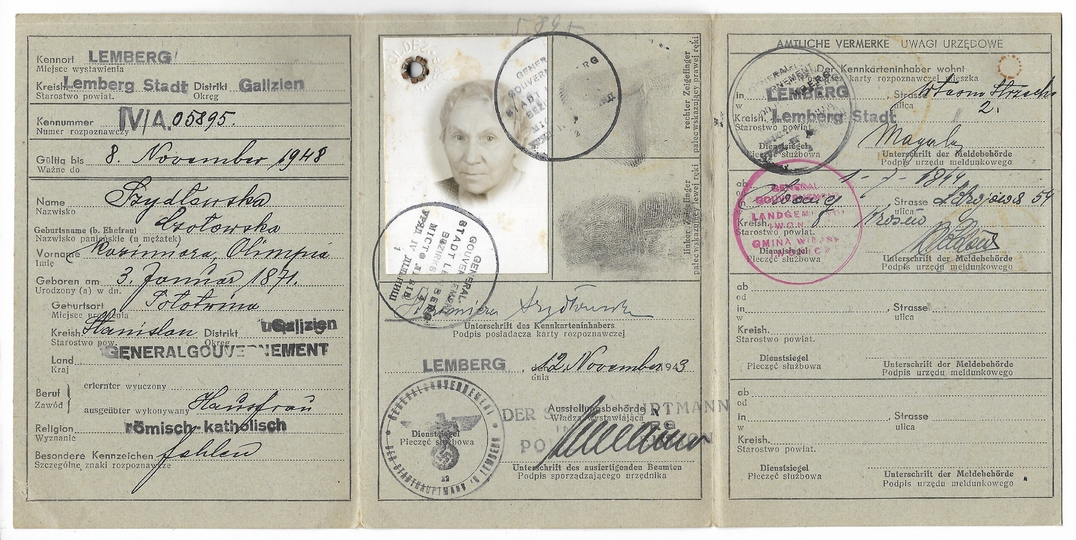 Kennort LEMBERG
Miejsce wystawienia
Kreish. Lemberg Stadt Distrikt Galizien
Starostwo powiat. Okręg
Kennummer IV/A. 05895.
Numer rozpoznawczy
Gültig bis 8. November 1948
Ważne do
Name Szydłowska
Nazwisko
Geburtsname (b. Ehefrau) Czołowska
Nazwisko panieńskie (u mężatek)
Vorname Kazimiera, Olimpia
Imię
Geboren am 3. Januar 1871.
Urodzony (a) w dn.
Geburtsort
Miejsce urodzenia
Kreish. Stanislau Distrikt Galizien
Starostwo pow. Okręg
Land GENERALGOUVERNEMENT
Kraj
Beruf erlernter wyuczony
Zawód ausgeübter wykonywany Hausfrau
Religion römisch-katholisch
Wyznanie
Besondere Kennzeichen fehlen
Szczególne znaki rozpoznawcze
5895
rechter Zeigefinger
palec wskazujący prawej ręki
linker Zeigefinger
palec wskazujący lewej ręki
Kazimiera Szydłowska
Unterschrift des Kennkarteninhabers
Podpis posiadacza karty rozpoznawczej
LEMBERG, 12. November 1943
dnia
GENERALGOUVERNEMENT
DER STADTHAUPTMANN IN LEMBERG
Dienstsiegel
Pieczęć służbowa
Ausstellungsbehörde
Władza wystawiająca
DER STADTHAUPTMANN
Unterschrift des ausfertigenden Beamten
Podpis sporządzającego urzędnika
AMTLICHE VERMERKE UWAGI URZĘDOWE
Der Kennkarteninhaber wohnt
karty rozpoznawczej mieszka
in LEMBERG, Strasse
w ulica 2.
Kreish. Lemberg Stadt
Starostwo powiat.
Dienstsiegel Unterschrift der Meldebehörde
Pieczęć służbowa Podpis urzędu meldunkowego
ab 1-7-1944
od
in Strasse 54
w ulica
Kreish. Krosno
GENERAL
GOUVERNEMENT
LANDGEMEINDE
IWONICZ
GMINA WIEJSKA
IWONICZ
Dienstsiegel
Unterschrift der Meldebehörde
Podpis urzędu meldunkowego
ab
od
in Strasse
w ulica
Kreish.
Starostwo powiat.
Dienstsiegel Unterschrift der Meldebehörde
Pieczęć służbowa Podpis urzędu meldunkowego
ab
od
in Strasse
w ulica
Kreish.
Starostwo powiat.
Dienstsiegel Unterschrift der Meldebehörde
Pieczęć służbowa Podpis urzędu meldunkowego